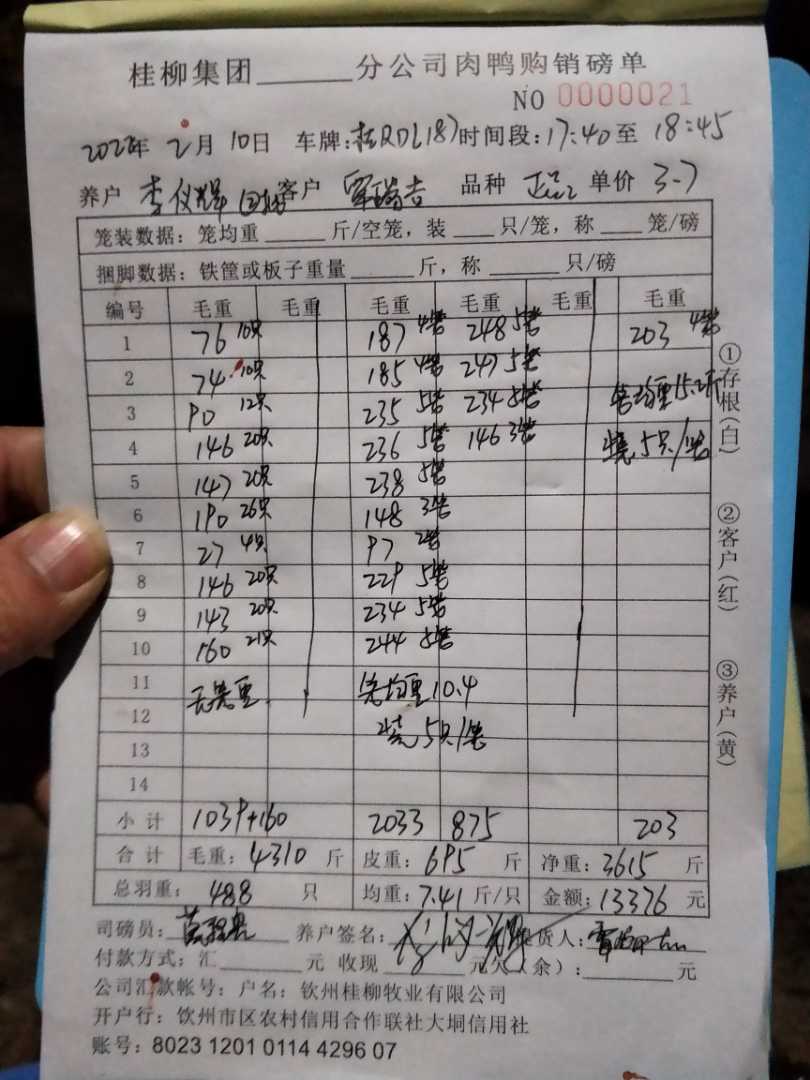 桂柳集团______分公司肉鸭购销磅单
NO 0000021
2022年 2月 10日 车牌:桂RD1187 时间段:17:40至 18:45
养户 李仪辉 客户 覃瑞吉 品种 单价 3.7
笼装数据: 笼均重 _____ 斤/空笼, 装 ____ 只/笼, 称 ____ 笼/磅
捆脚数据: 铁筐或板子重量 ______ 斤, 称 ______ 只/磅
编号 毛重 毛重 毛重 毛重 毛重 毛重
1 76 10只 187 4笼 248 5笼 203 4笼
2 74 10只 185 4笼 247 5笼 笼均重15.2斤
3 90 12只 235 5笼 234 5笼
4 146 20只 236 5笼 146 3笼 装5只/笼
5 147 20只 238 5笼
6 190 26只 148 3笼
7 27 4只 97 2笼
8 146 20只 229 5笼
9 143 20只 234 5笼
10 160 21只 244 5笼
11 无笼重 笼均重10.4
12 装5只/笼
13
14
小计 1039+160 2033 875 203
合计 毛重: 4310 斤 皮重: 695 斤 净重: 3615 斤
总羽重: 488 只 均重: 7.41 斤/只 金额: 13376 元
司磅员: 养户签名: 货人:
付款方式: 汇______元 收现______元欠(余): ______元
公司汇款帐号: 户名: 钦州桂柳牧业有限公司
开户行: 钦州市区农村信用合作联社大垌信用社
账号: 8023 1201 0114 4296 07
①存根(白)
②客户(红)
③养户(黄)